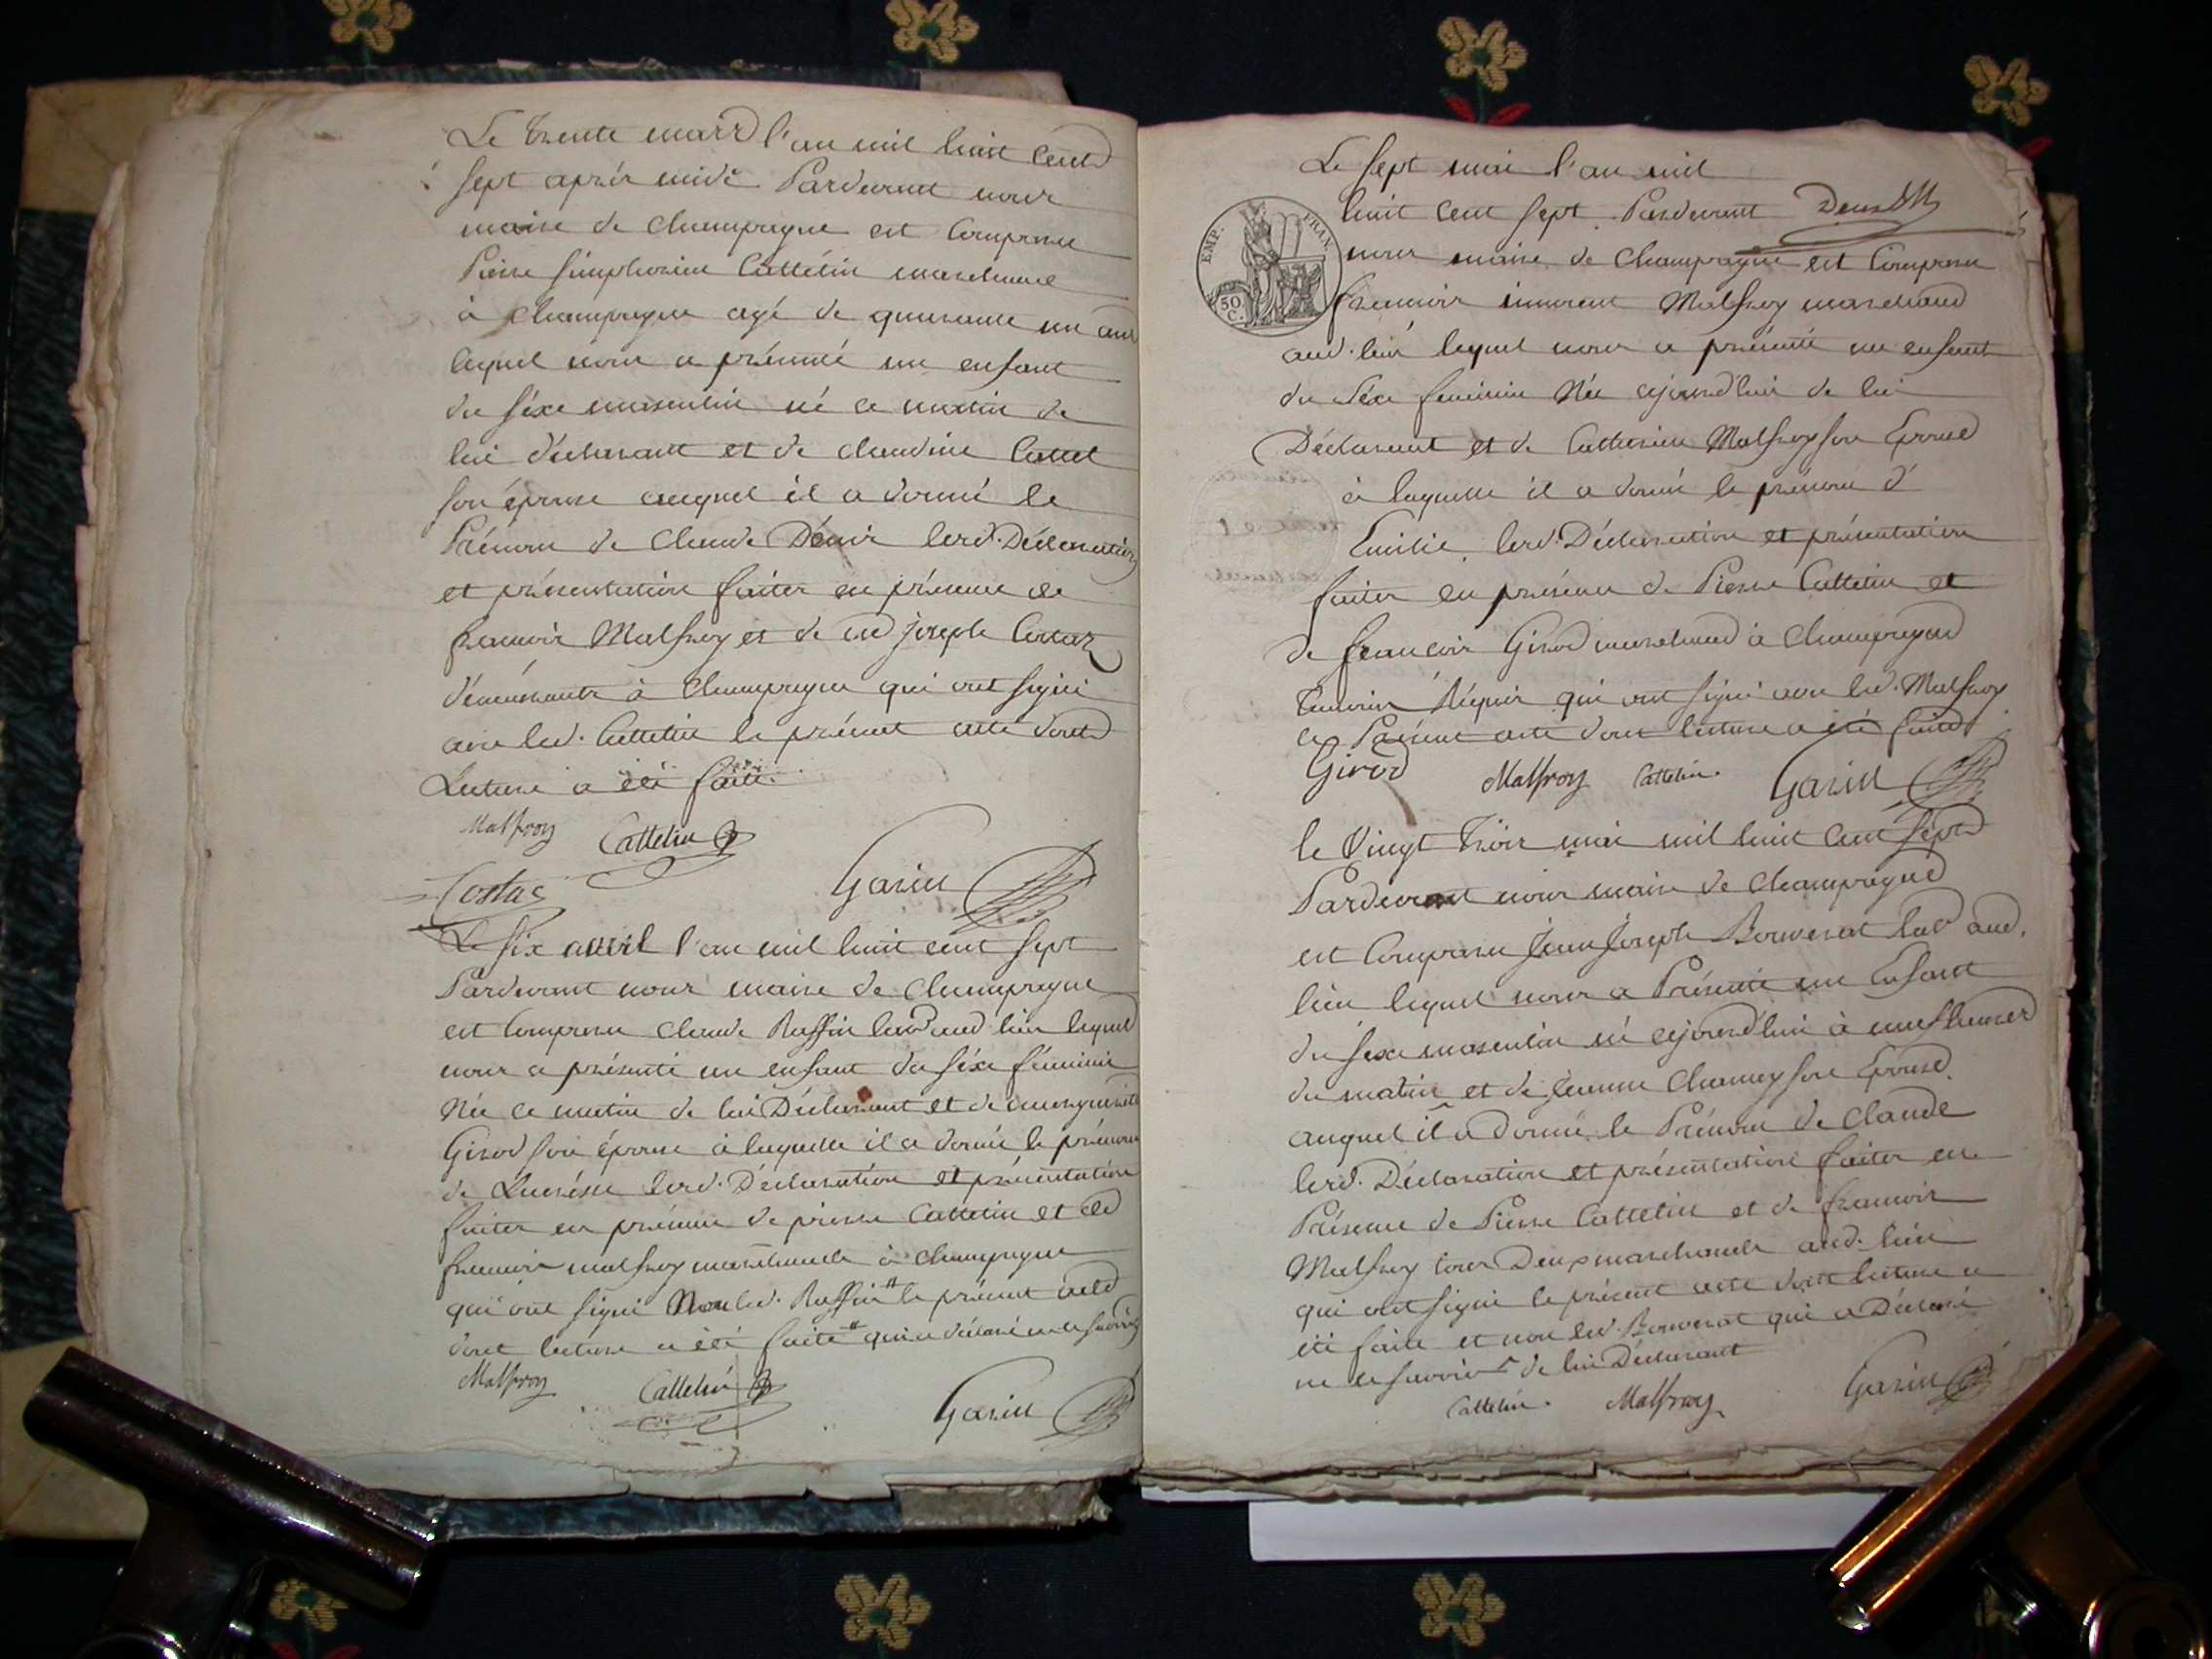 Le trente mars l'an mil huit cent
sept après midi Pardevant nous
maire de Champagne est Comparu
Pierre Simphorien Cattelin marchand
à Champagne agé de quarante un ans
lequel nous a présenté un enfant
du séxe masculin né ce matin de
lui déclarant et de claudine Cattet
son épouse auquel il a donné le
Prénom de Claude Denis lesd. Déclaration
et présentation faites en présence de
francois Malfroy et de joseph Costaz
démeurants à Champagne qui ont signé
avec led. Cattelin le présent acte dont
Lecture a été faite.
Malfroy Cattelin
Costaz Garin
Le six avril l'an mil huit cent sept
Pardevant nous maire de Champagne
est Comparu Claude Ruffin aud lieu lequel
nous a présenté un enfant du séxe féminin
Née ce matin de lui Déclarant et de marguerite
Girod son épouse à laquelle il a donné le prénom
de lesd. Déclaration et présentation
faites en présence de pierre Cattelin et de
francois malfroy marchands à Champagne
qui ont signé Non led. Ruffin # le présent acte
dont lecture a été faite # qui a déclaré ne le savoir
Malfroy Cattelin Garin
Le sept mai l'an mil
huit cent sept Pardevant Deux
EMP. FRAN.
50 C.
nous maire de Champagne est Comparu
francois innocent Malfroy marchand
aud. lieu lequel nous a présenté un enfant
du Séxe feminin Née cejourd'hui de lui
Déclarant et de Catherine Malfroy son Epouse
à laquelle il a donné le prénom d'
Emilie lesd. Déclaration et présentation
faites en présence de Pierre Cattelin et
de francois Girod marchand à Champagne
témoins Réquis qui ont signé avec led. Malfroy
le Présent acte dont lecture a été faite
Girod Malfroy Cattelin. Garin
le Vingt trois mai mil huit cent sept
Pardevant nous maire de Champagne
est Comparu Jean Joseph Bouverat lab.r aud.
lieu lequel nous a Présenté un Enfant
du sexe masculin né cejourd'hui à neuf heures
du matin et de Jeanne Chamey son Epouse
auquel il a Donné le Prénom de Claude
lesd. Déclaration et présentation faites en
Présence de Pierre Cattelin et de francois
Malfroy tous Deux marchands aud. lieu
qui ont signé le présent acte dont lecture a
été faite et non led. Bouverat qui a Déclaré
ne le savoir de lui Déclarant
Cattelin. Malfroy Garin